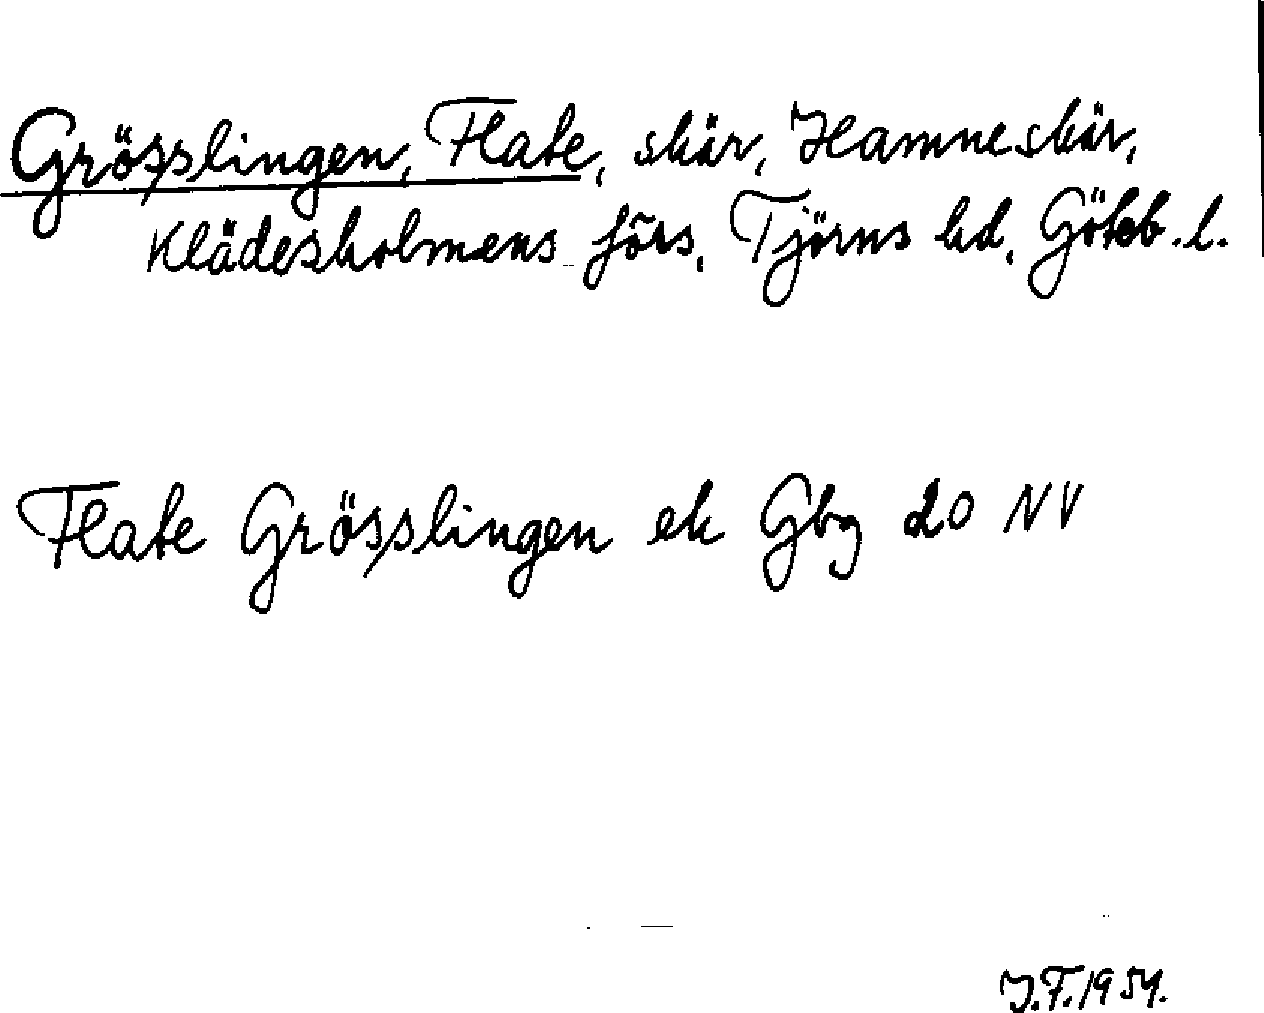 Grösslingen, Flate, skär, Hamneskär,
Klädesholmens förs, Tjörns hd, Göteb. l.
Flate Grösslingen ek Gbg 20 NV
J.F. 1954.